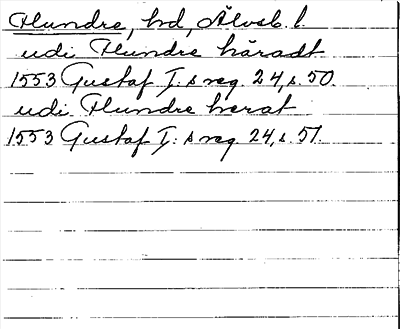 Flundre, hd, Älvsb. l.
udi Flundre häradt
1553 Gustaf I:s reg. 24, s. 50.
udi Flundre herat
1553 Gustaf I:s reg. 24, s. 51.